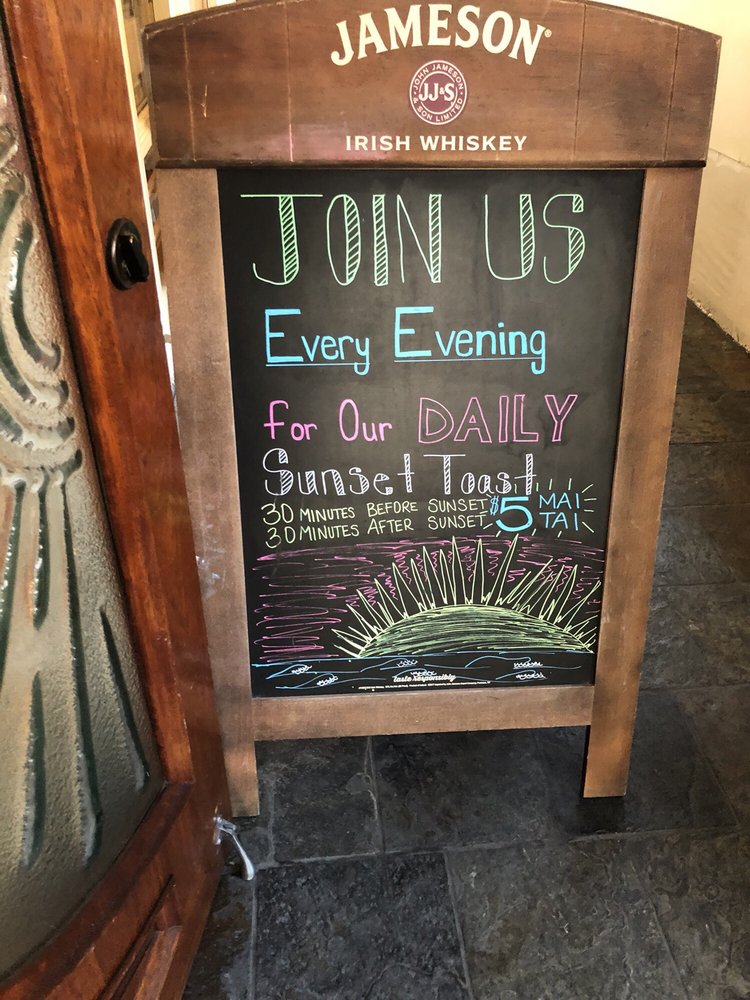 JAMESON®
JOHN JAMESON
JJ&S
& SON LIMITED
IRISH WHISKEY
JOIN US
Every Evening
For Our DAILY
Sunset Toast
30 MINUTES BEFORE SUNSET
30 MINUTES AFTER SUNSET
$5 MAI
TAI
taste responsibly